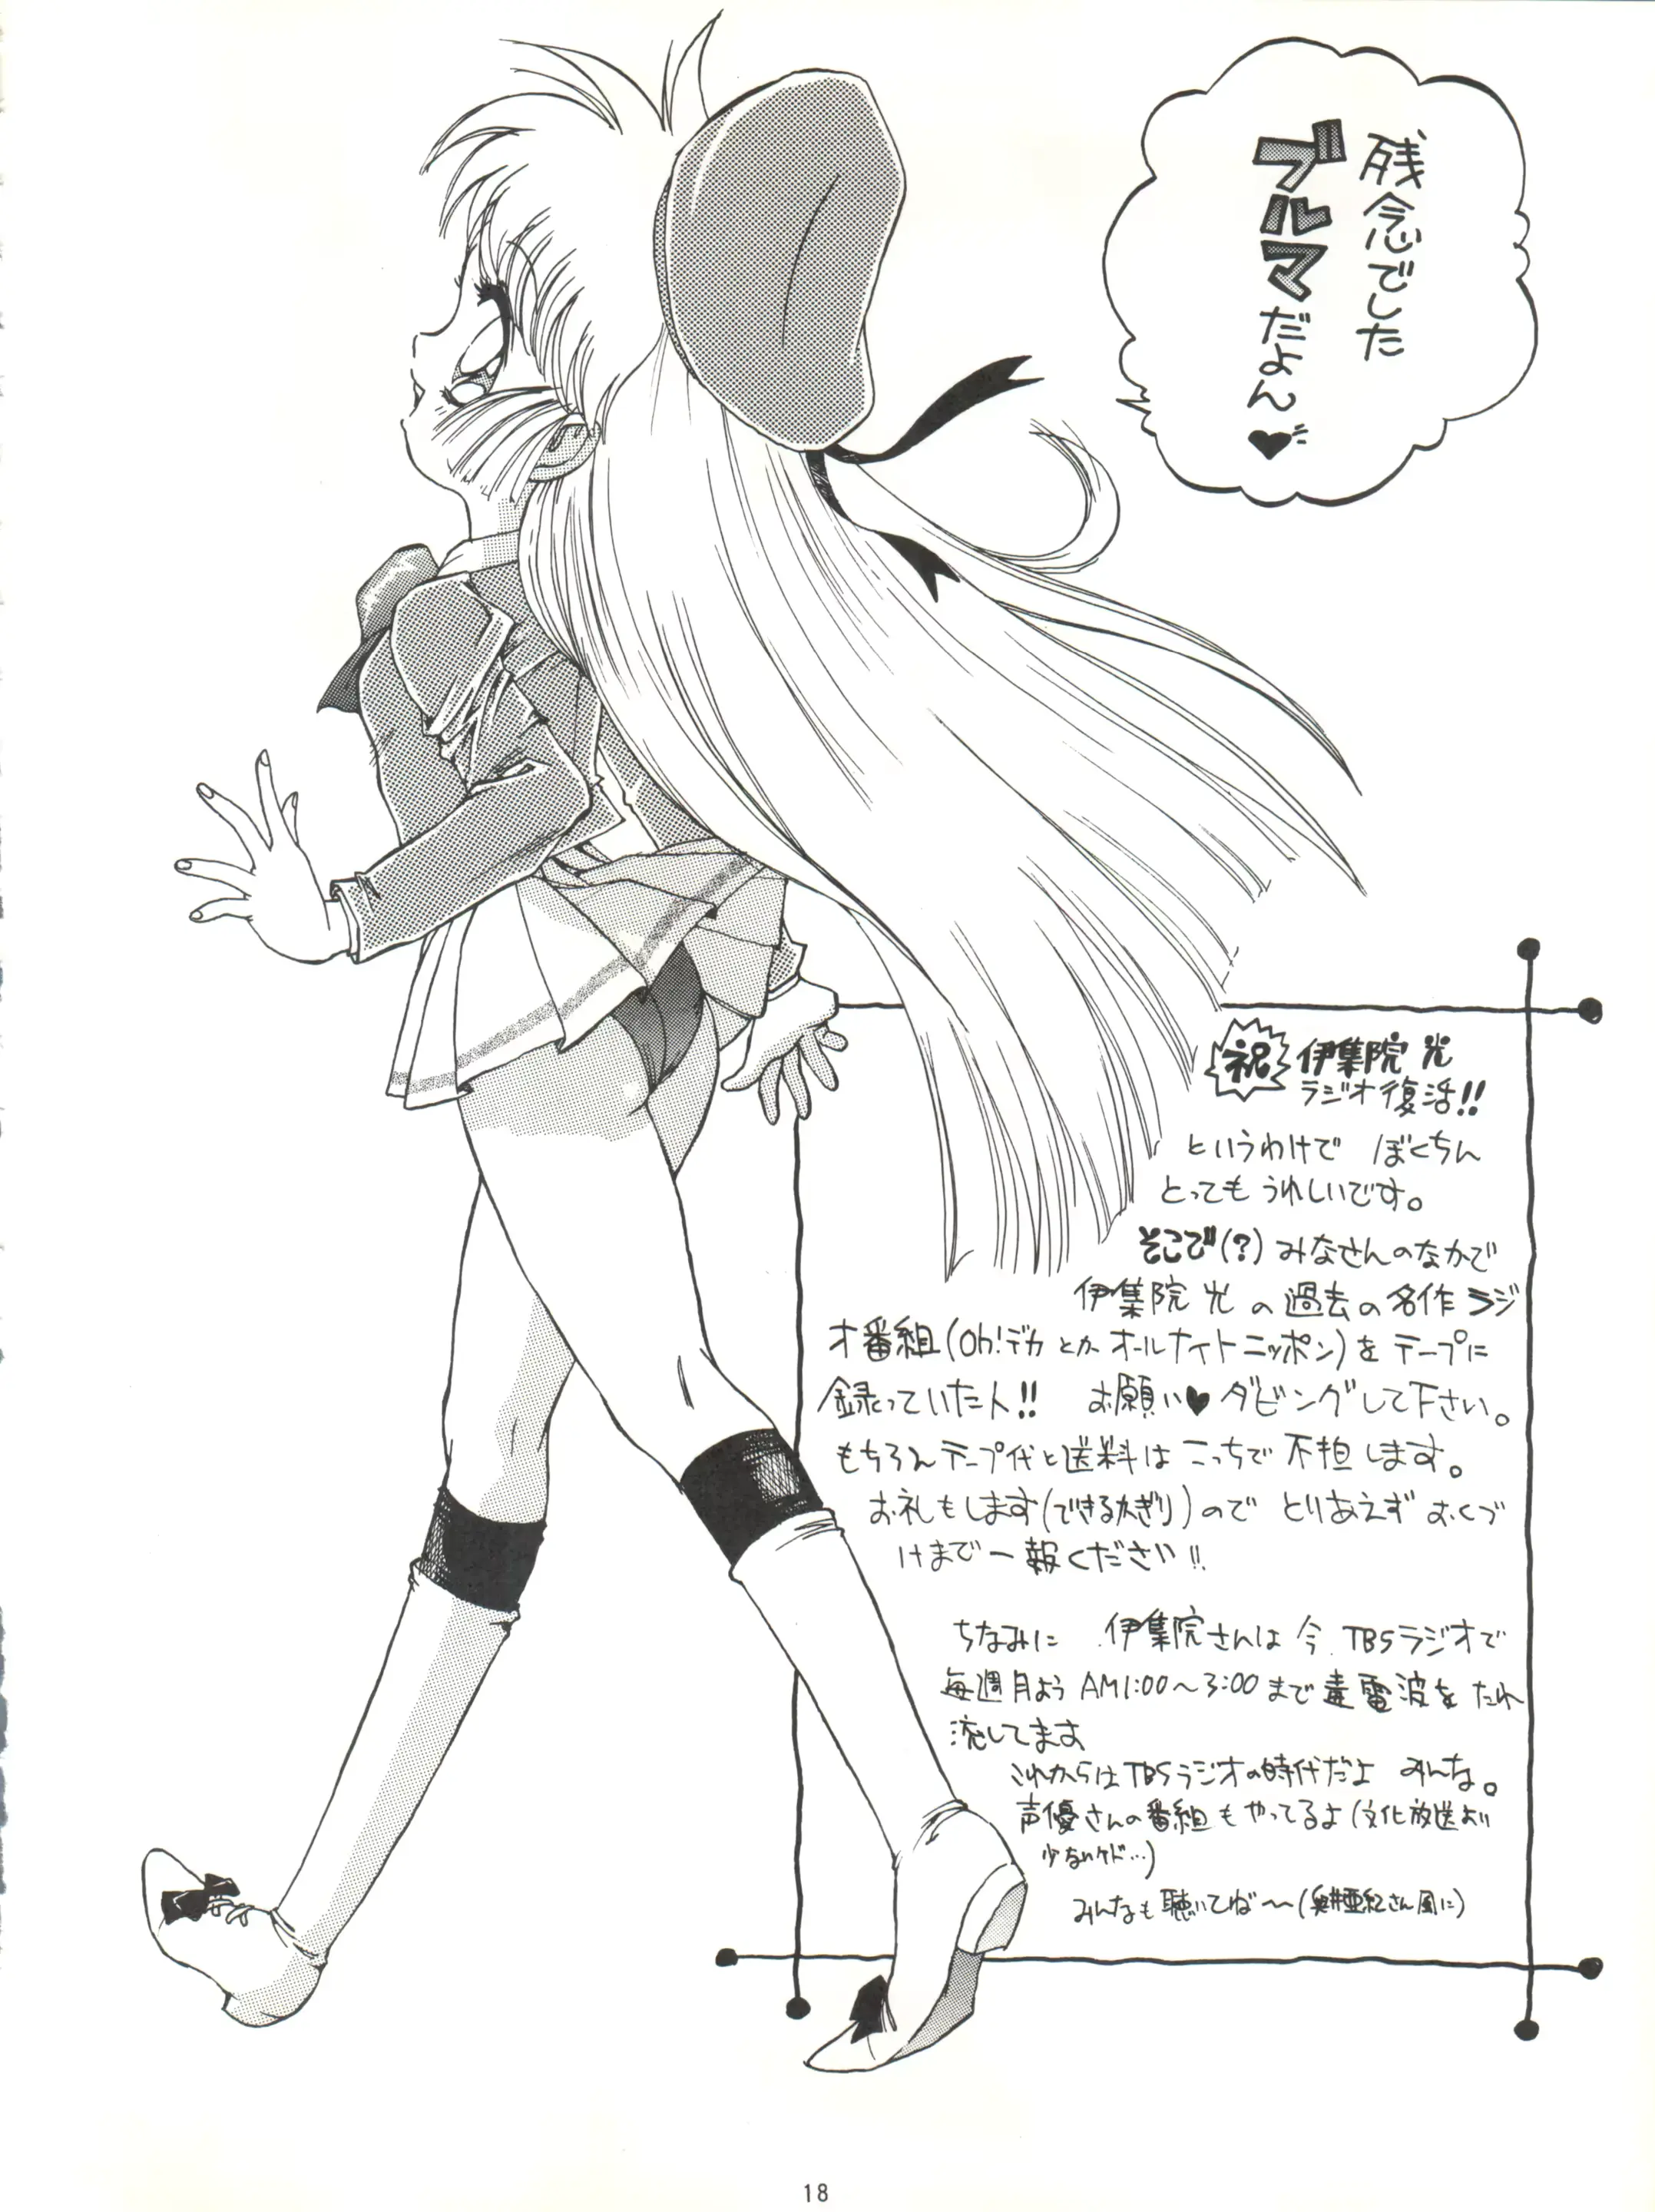 残念でした
ブルマだよん♥
祝 伊集院 光
ラジオ復活!!
というわけで ぼくちん
とっても うれしいです。
そこで(?) みなさんのなかで
伊集院 光 の 過去の 名作 ラジ
オ番組(Oh!デカ とか オールナイトニッポン)を テープに
録っていた人!! お願い♥ ダビングして下さい。
もちろんテープ代と送料は こっちで 不担します。
お礼もします(できるかぎり)ので とりあえず おくづ
けまで一報ください!!
ちなみに 伊集院さんは 今 TBSラジオで
毎週月よう AM1:00〜3:00まで 毒電波を たれ
流してます
これからはTBSラジオの時代だよ みんな。
声優さんの番組もやってるよ(文化放送より
少ないケド…)
みんなも聴いてね〜(井亜紀さん風に)
18